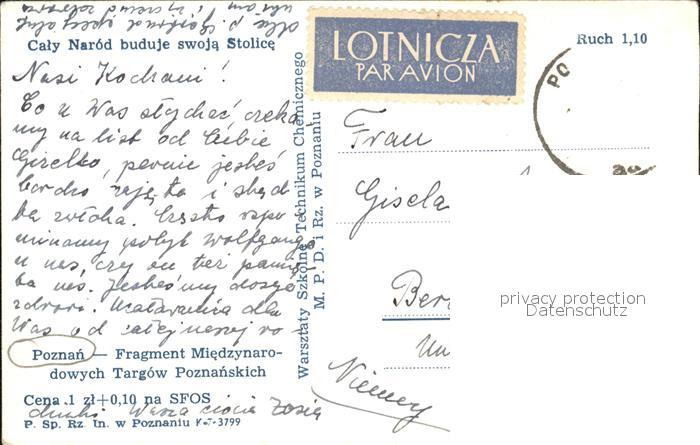 Cały Naród buduje swoją Stolicę
Nasi Kochani!
Co u Was słychać, czeka
my na list od Ciebie
Gizelko, pewnie jesteś
bardzo zajęta i
Często wspo
minamy pobyt Wolfganga
u nas, czy on też pamię
ta nas. Jesteśmy dosyć
zdrowi. Ucałowania dla
Was od całej naszej ro-
Poznań — Fragment Międzynaro-
dowych Targów Poznańskich
Cena 1 zł+0,10 na SFOS
Wasza ciocia Zosia
P. Sp. Rz. In. w Poznaniu K-7-3799
Warsztaty Szkolne Technikum Chemicznego
M. P. D. i Rz. w Poznaniu
LOTNICZA
PAR AVION
Ruch 1,10
PO
Frau
Gisela
Ber
Un
Niemcy
privacy protection
Datenschutz